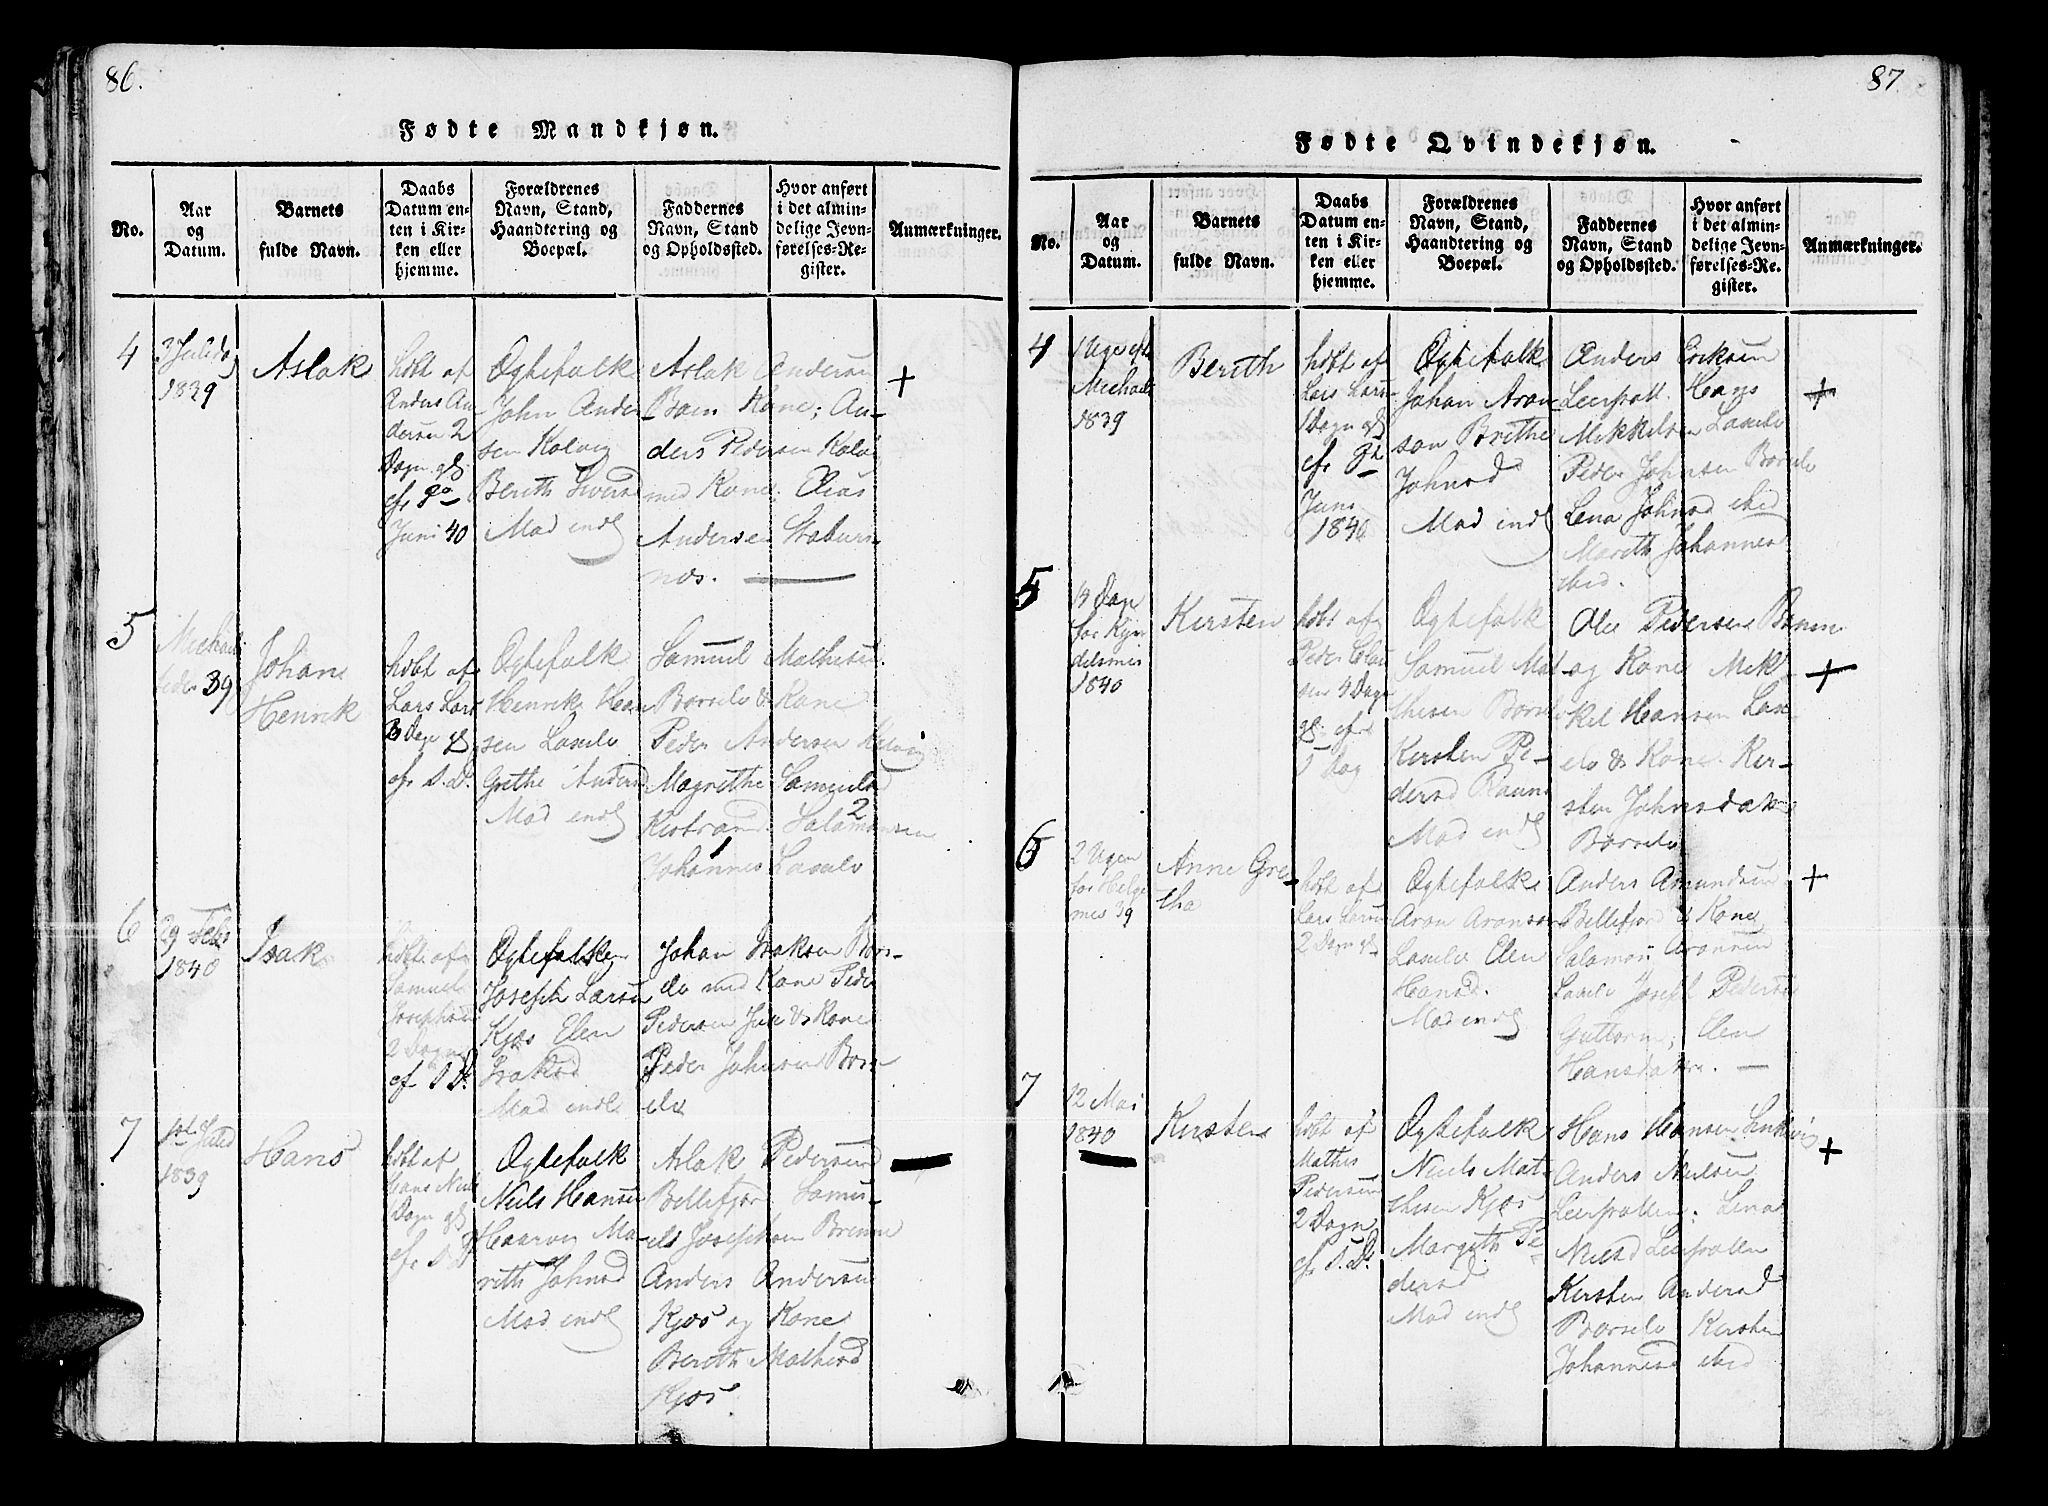 86.
Fødte Mandkjøn.
No.
Aar
og
Datum.
Barnets
fulde Navn.
Daabs
Datum en-
ten i Kir-
ken eller
hjemme.
Forældrenes
Navn, Stand,
Haandtering og
Boepæl.
Faddernes
Navn, Stand
og Opholdssted.
Hvor anført
i det almin-
delige Jevn-
førelses-Re-
gister.
Anmærkninger.
4
3 Juledag
1839
Aslak
hdbt af
Anders An
dersen 2
Dagn gl
cfr 9de
Juni 40
Ægtefolk
John Ander
sen Kolvig
Bereth Iversd
Mad endl
Aslak Andersen
Kone; An-
ders Pedersen
med Kone. Elias
Andersen
nes.
+
5
Michael
39
Johan
Henrik
hdbt af
Lars Lars
3 Dage gl
cfr S. D.
Ægtefolk
Henrik Han
sen Laxelv
Grethe Andersd
Mad endl
Samuel Mathesen
Borselv & Kone
Peder Andersen Kolvig
Magrethe Samuelsd
Kistrand. Salamonsen 2
Johannes 1 Laxelv
6
29 Febr
1840
Isak
hdbt af
Samuel
Josephsen
2 Dagn
cf S D.
Ægtefolk
Joseph Larsen
Kjæs Elen
Isaksd
Mad endl
Johan Isaksen Bors-
elv med Kone Peder
Pedersen & Kone
Peder Johnsen Bors
elv
7
1ste Juled
1839
Hans
hdbt af
Hans Niels
Dagn gl
cfr S D
Ægtefolk
Niels Hansen
Ma-
reth Johnsd
Mad endl
Aslak Pedersen
Billefjor. Samu-
el Josephsen
Anders Andersen
Kjæs og Kone
Bereth Mathesd
Kjæs.
87.
Fødte Qvindekjøn.
No.
Aar
og
Datum.
Barnets
fulde Navn.
Daabs
Datum en-
ten i Kir-
ken eller
hjemme.
Forældrenes
Navn, Stand,
Haandtering og
Boepæl.
Faddernes
Navn, Stand
og Opholdssted.
Hvor anført
i det almin-
delige Jevn-
førelses-Re-
gister.
Anmærkninger.
4
1 Uge eft
Michael
1839
Berith
hdbt af
Lars Larsen
1 Dagn gl
cfr
Juni
1840
Ægtefolk
Johan Aron
son Brithe
Johnsd
Mad endl
Anders Eriksen
Leerpoll. Hans
Mikkelsen Laxelv
Peder Johnsen Borselv
Lena Johnsd ibid
Mareth Johannesd
ibid.
+
5
14 Dage
før Kyn
delsmis
1840
Kirsten
hdbt af
Peder Clau
sen 4 Dage
gl cfr
5 Dag
Ægtefolk
Samuel Mat
thesen Borselv
Kirsten Pe-
dersd
Mad endl
Ole Pedersen
og Kone Mik
kel Hansen Lax-
elv & Kone. Kir-
sten Johnsdatter
Borselv
+
6
2 Ugen
for Helge
mes 39
Anne Gre-
tha
hdbt af
Lars Larsen
2 Dagn gl
Ægtefolk
Aron Aronsen
Laxelv Elen
Hansd.
Mad endl
Anders Amundsen
Billefjord & Kone
Salamon Aronsen
Laxelv Joseph Pedersen
Guttorm; Elen
Hansdatter.
+
7
12 Mai
1840
Kirsten
hdbt af
Mathis
Pedersen
2 Dagn
cfr S. D.
Ægtefolk
Niels Mat
thesen Kjæs
Margith Pe-
dersd
Mad endl
Hans Hansen
Anders Nielsen
Leerpollen. Lena
Nielsd Leerpollen
Kirsten Andersd
Borselv Kirsten
Johannesd ibid
+